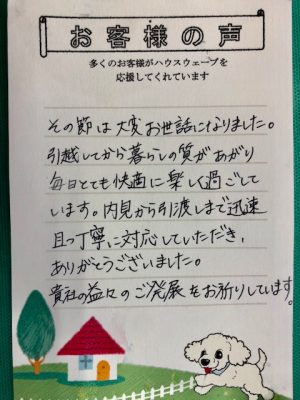 お客様の声
多くのお客様がハウスウェーブを
応援してくれています
その節は大変お世話になりました。
引越してから暮らしの質があがり
毎日とても快適に楽しく過ごして
います。内見から引渡しまで迅速
且つ丁寧に対応していただき、
ありがとうございました。
貴社の益々のご発展をお祈りしています。